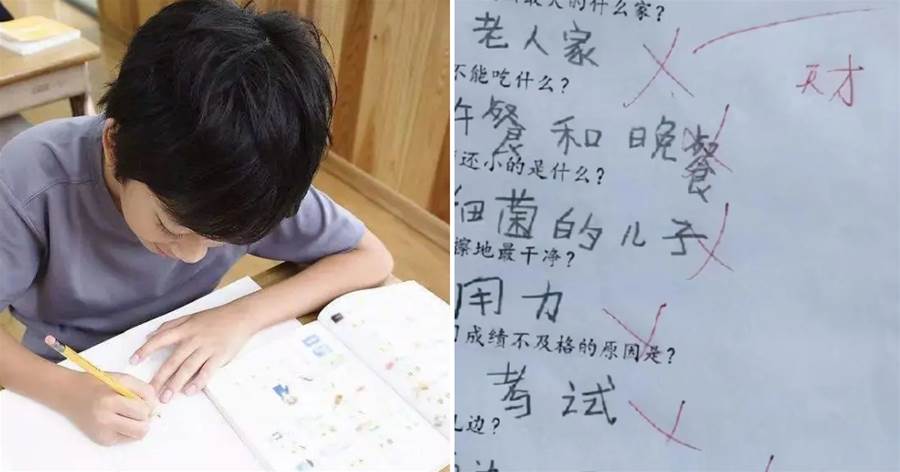 最大的什么家?
老人家
天才
不能吃什么?
午餐和晚餐
还小的是什么?
细菌的儿子
擦地最干净?
用力
成绩不及格的原因是?
考试
边?